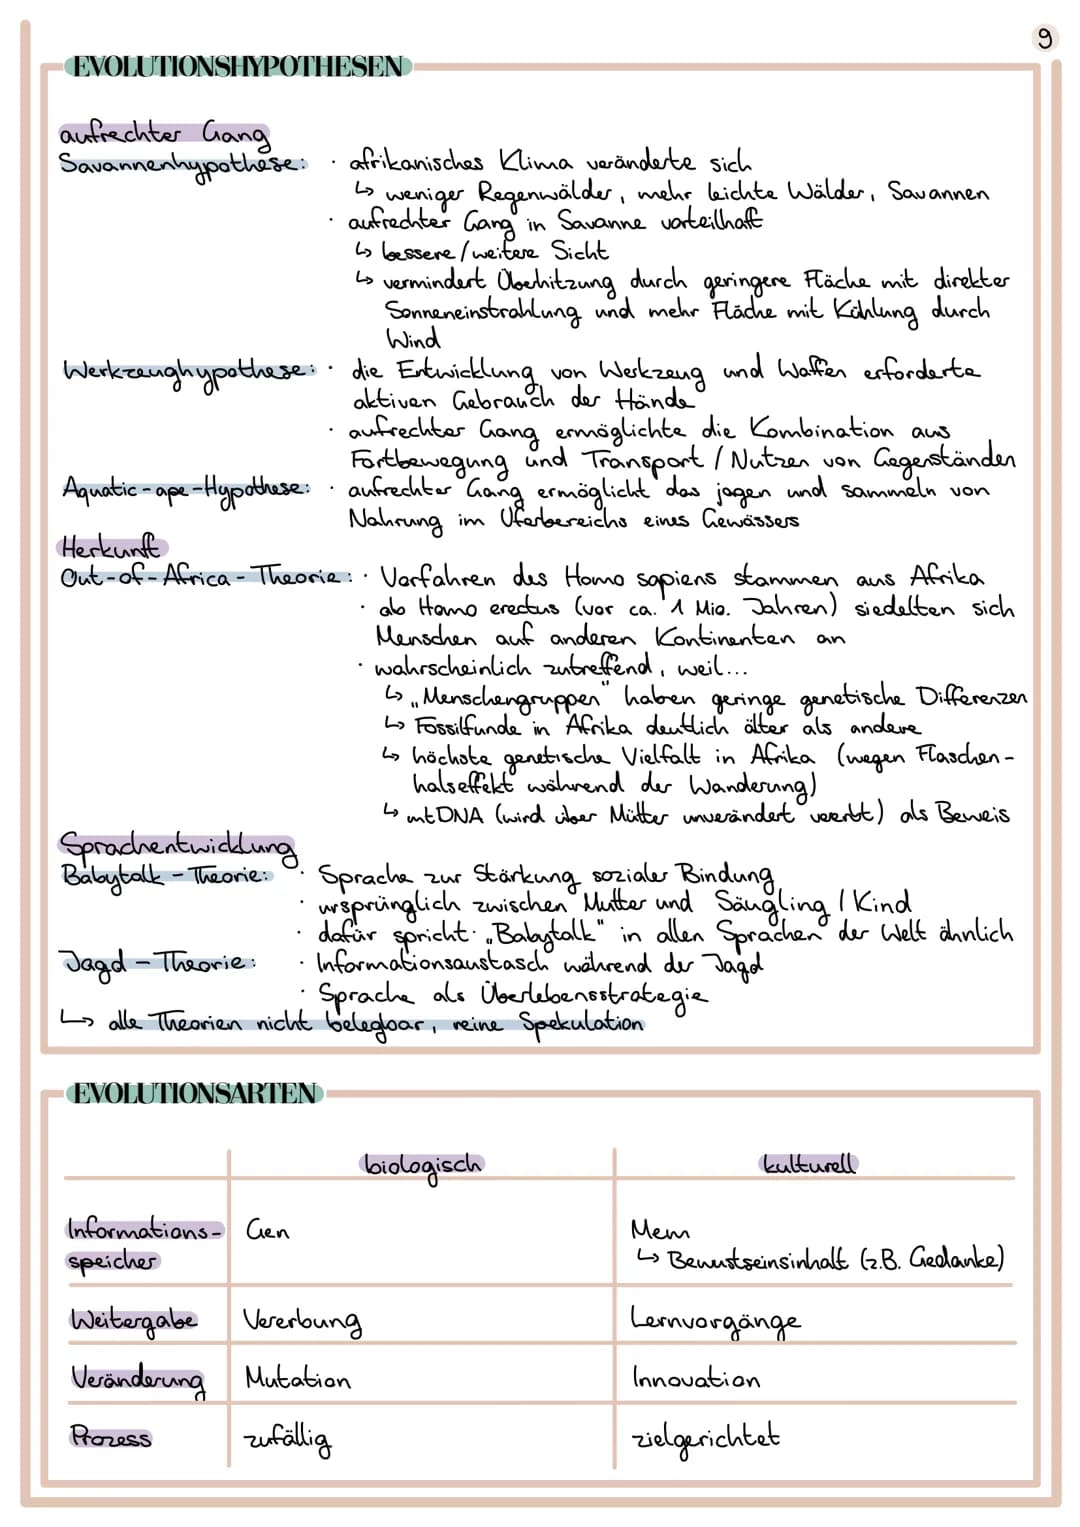 9
EVOLUTIONSHYPOTHESEN
aufrechter Gang
Savannenhypothese: · afrikanisches Klima veränderte sich
↳ weniger Regenwälder, mehr leichte Wälder, Savannen
· aufrechter Gang in Savanne vorteilhaft
↳ bessere/weitere Sicht
↳ vermindert Überhitzung durch geringere Fläche mit direkter
Sonneneinstrahlung und mehr Fläche mit Kühlung durch
Wind
Werkzeughypothese: · die Entwicklung von Werkzeug und Waffen erforderte
aktiven Gebrauch der Hände
· aufrechter Gang ermöglichte die Kombination aus
Fortbewegung und Transport / Nutzen von Gegenständen
Aquatic-ape-Hypothese: · aufrechter Gang ermöglicht das jagen und sammeln von
Nahrung im Uferbereichs eines Gewässers
Herkunft
Out-of-Africa-Theorie: · Vorfahren des Homo sapiens stammen aus Afrika
· ab Homo erectus (vor ca. 1 Mio. Jahren) siedelten sich
Menschen auf anderen Kontinenten an
· wahrscheinlich zutreffend, weil...
↳ „Menschengruppen" haben geringe genetische Differenzen
↳ Fossilfunde in Afrika deutlich älter als andere
↳ höchste genetische Vielfalt in Afrika (wegen Flaschen-
halseffekt während der Wanderung)
↳ mtDNA (wird über Mütter unverändert vererbt) als Beweis
Sprachentwicklung
Babytalk-Theorie: · Sprache zur Stärkung sozialer Bindung
· ursprünglich zwischen Mutter und Säugling / Kind
· dafür spricht: „Babytalk" in allen Sprachen der Welt ähnlich
Jagd-Theorie: · Informationsaustasch während der Jagd
· Sprache als Überlebensstrategie
↳ alle Theorien nicht belegbar, reine Spekulation
EVOLUTIONSARTEN
biologisch kulturell
Informations- Gen Mem
speicher ↳ Bewustseinsinhalt (z.B. Gedanke)
Weitergabe Vererbung Lernvorgänge
Veränderung Mutation Innovation
Prozess zufällig zielgerichtet